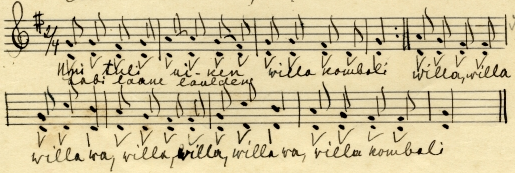 2/4
Uni tuli ui-nen willa kombali willa, willa
läbi laane lauldens
willa wa, willa, willa, willa wa, willa kombali